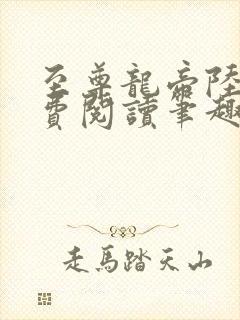 至尊龍帝陸
費閱讀筆趣
走馬踏天山